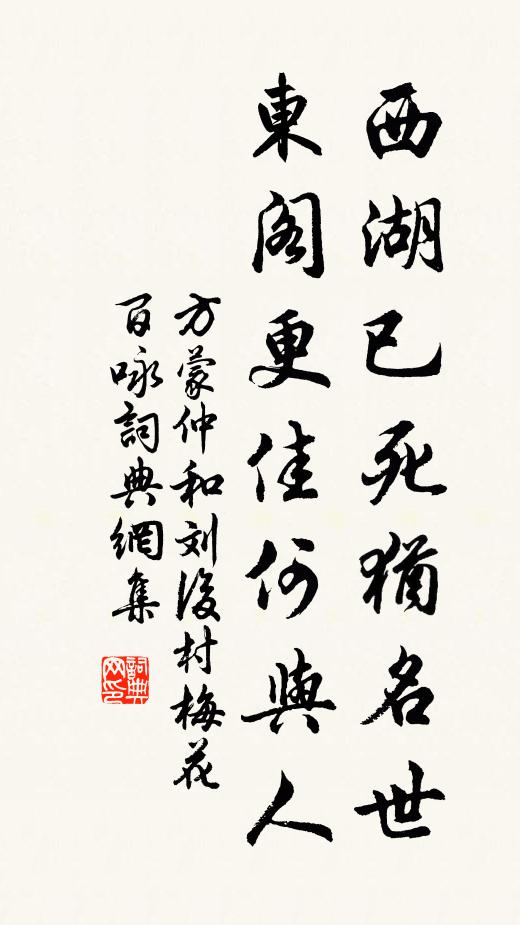 西湖已死猶名世
東閣更佳何與人
方蒙仲和刘後村梅花
百咏詞典網集
詞典网印